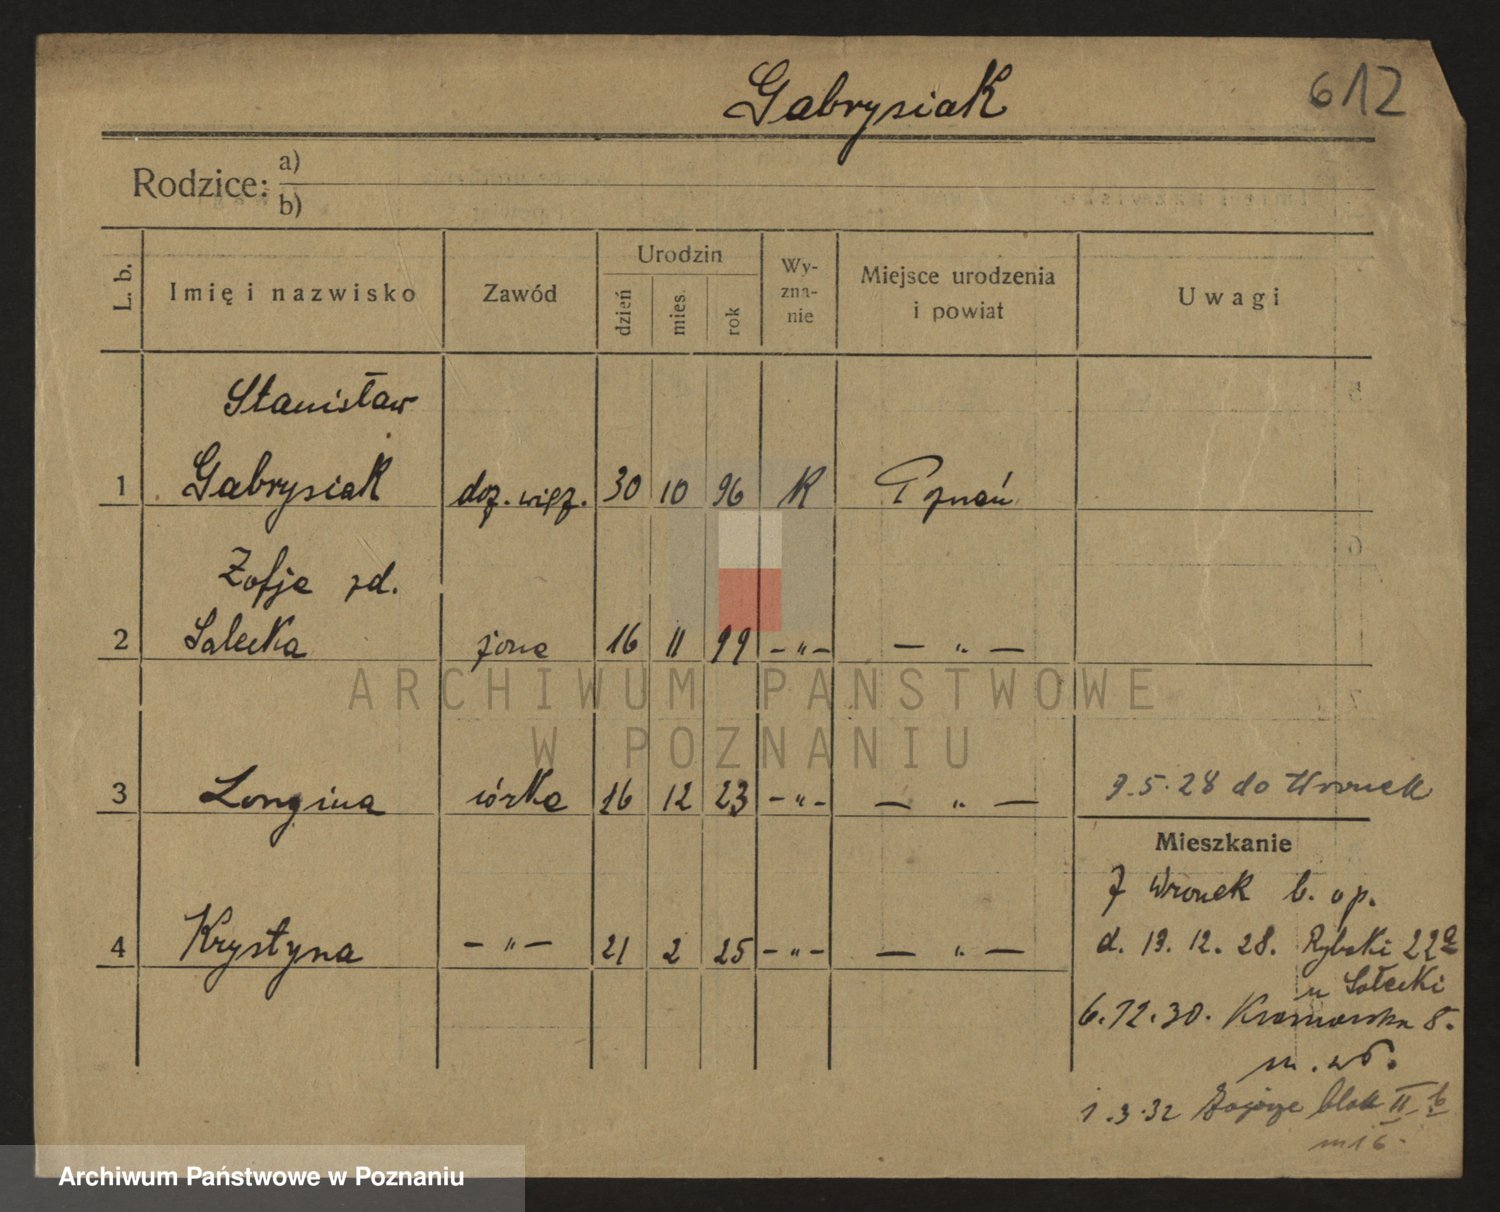 Gabrysiak
612
Rodzice: a)
b)
L. b. Imię i nazwisko Zawód Urodzin dzień mies. rok Wy-zna-nie Miejsce urodzenia i powiat Uwagi
Stanisław
1 Gabrysiak doz. więz. 30 10 96 R Poznań
Zofja zd.
2 Sałecka żona 16 11 99 – " – – " –
3 Longina córka 16 12 23 – " – – " – 9.5.28 do Wronek
Mieszkanie
4 Krystyna – " – 21 2 25 – " – – " –
z Wronek b. op.
d. 19. 12. 28. Rybaki 22a
u Sałecki
6.12.30. 8.
m.
1.3.32 blok II b
m 16.
ARCHIWUM PAŃSTWOWE
W POZNANIU
Archiwum Państwowe w Poznaniu